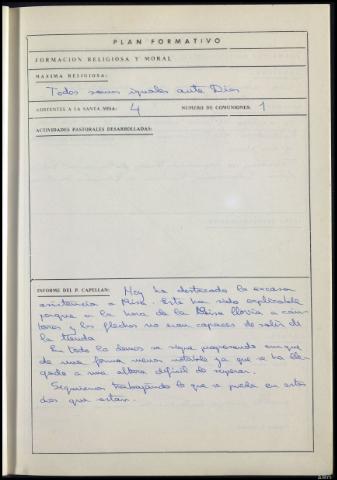 PLAN FORMATIVO
FORMACION RELIGIOSA Y MORAL
MAXIMA RELIGIOSA:
Todos somos iguales ante Dios
ASISTENTES A LA SANTA MISA: 4 NUMERO DE COMUNIONES: 1
ACTIVIDADES PASTORALES DESARROLLADAS:
INFORME DEL P. CAPELLAN: Hoy ha destacado la escasa
asistencia a Misa. Esto ha sido explicable
porque a la hora de la Misa llovía a cán-
taros y los flechas no eran capaces de salir de
la tienda
En todo lo demás se sigue progresando aunque
de una forma menos notable ya que se ha lle-
gado a una altura difícil de superar.
Seguiremos trabajando lo que se pueda en estos
días que restan.